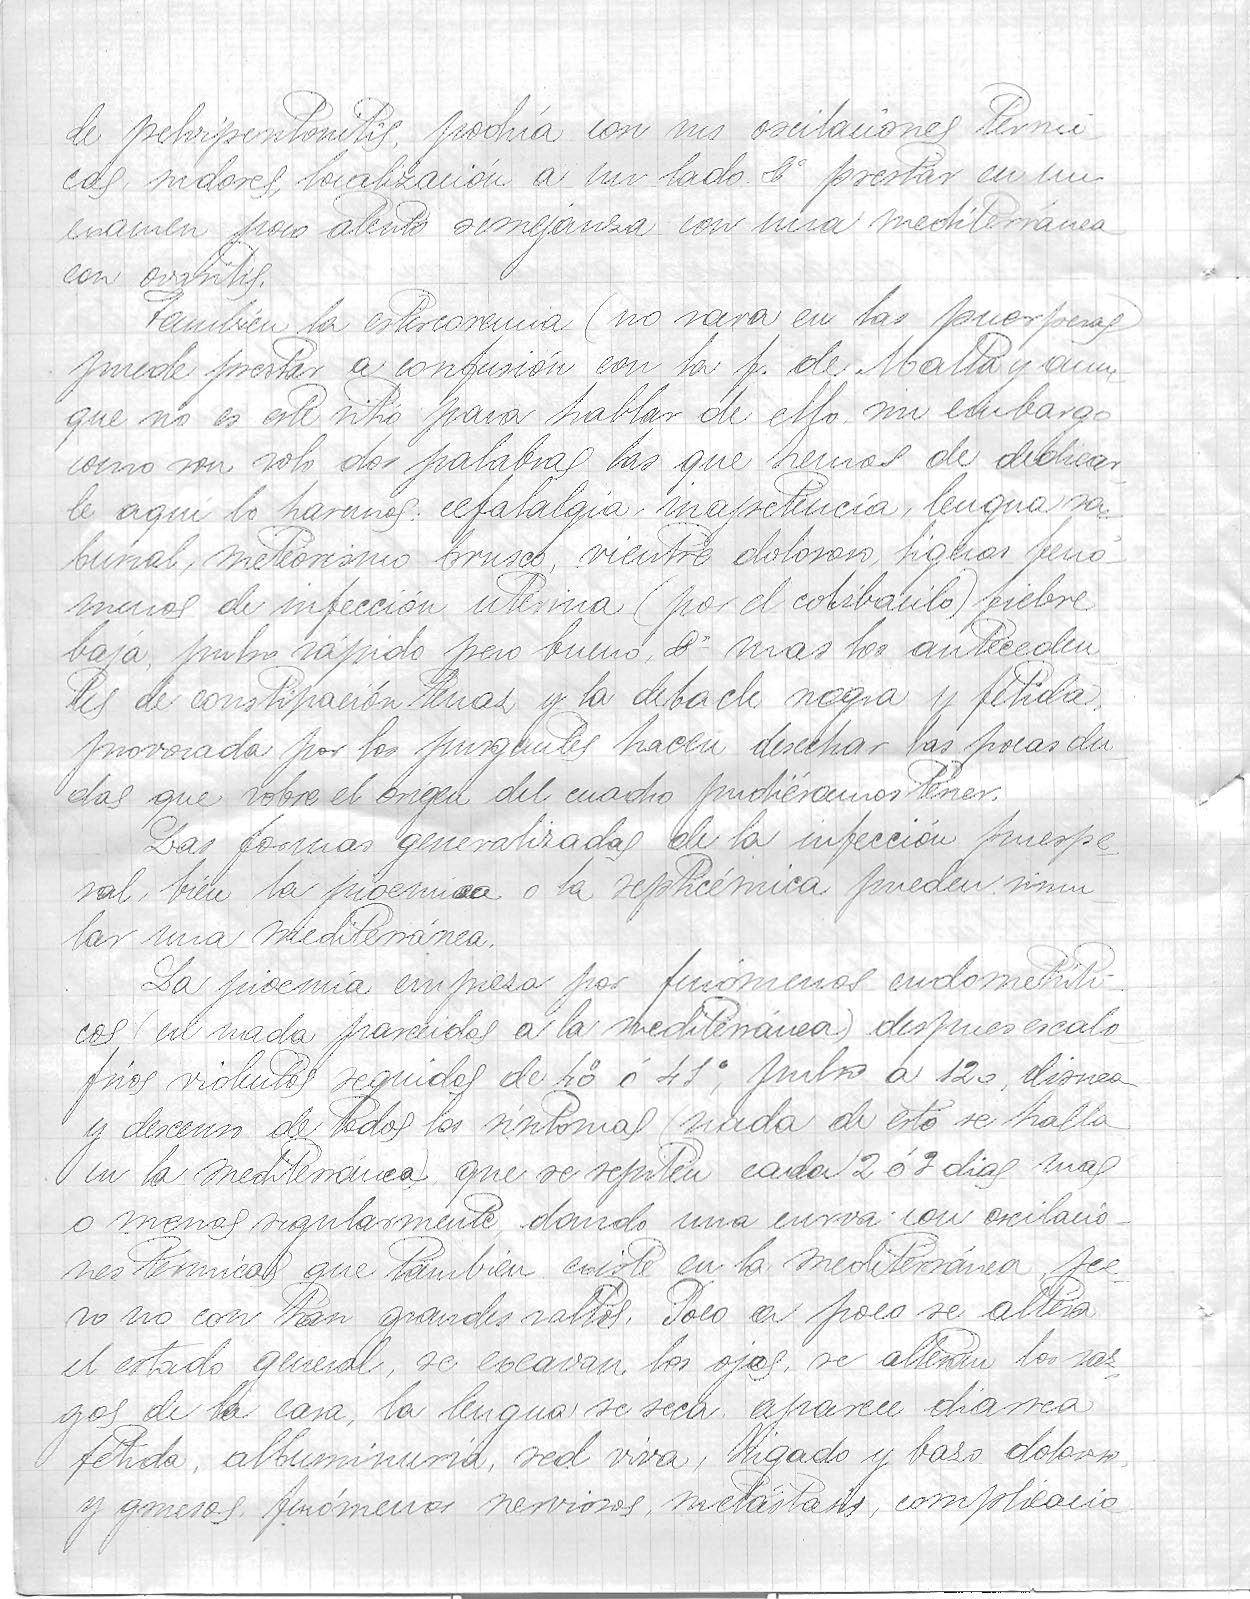 de pelviperitonitis, podría con sus oscilaciones térmi
cas, sudores, localización a un lado &ª prestar en un
examen poco atento semejanza con una mediterránea
con ovaritis.
También la estercoremia (no rara en las puerperas)
puede prestar a confusión con la f. de Malta y aun-
que no es este sitio para hablar de ello, sin embargo
como son solo dos palabras las que hemos de dedicar
le aquí lo haremos: cefalalgia, inapetencia, lengua sa-
burral, meteorismo brusco, vientre doloroso, ligeros fenó-
menos de infección uterina (por el colibacilo) fiebre
baja, pulso rápido pero bueno, &ª mas los anteceden
tes de constipación tenaz y la debacle negra y fétida,
provocada por los purgantes hacen desechar las pocas du
das que sobre el origen del cuadro pudiéramos tener.
Las formas generalizadas de la infección puerpe-
ral, bien la pioemica o la septicémica pueden simu-
lar una mediterránea.
La pioemia empieza por fenómenos endometríti-
cos (en nada parecidos a la mediterránea) despues escalo
frios violentos seguidos de 40º ó 41º, pulso a 120, disnea
y descenso de todos los síntomas (nada de esto se halla
en la mediterránea) que se repiten cada 2 ó 3 dias mas
o menos regularmente, dando una curva con oscilacio-
nes térmicas que también existe en la mediterránea pe-
ro no con tan grandes saltos. Poco a poco se altera
el estado general, se excavan los ojos, se alteran los ras-
gos de la cara, la lengua se seca, aparece diarrea
fétida, albuminuria, sed viva, hígado y bazo doloroso,
y gruesos, fenómenos nerviosos, metástasis, complicacio